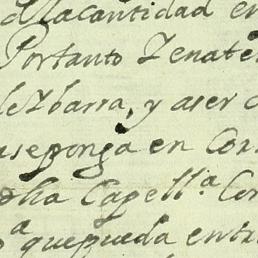 dlacantidad en
Portanto Zenate
de Ybarra, y aser
aseponga en Con
dha Capell.ª Con
quepueda entr